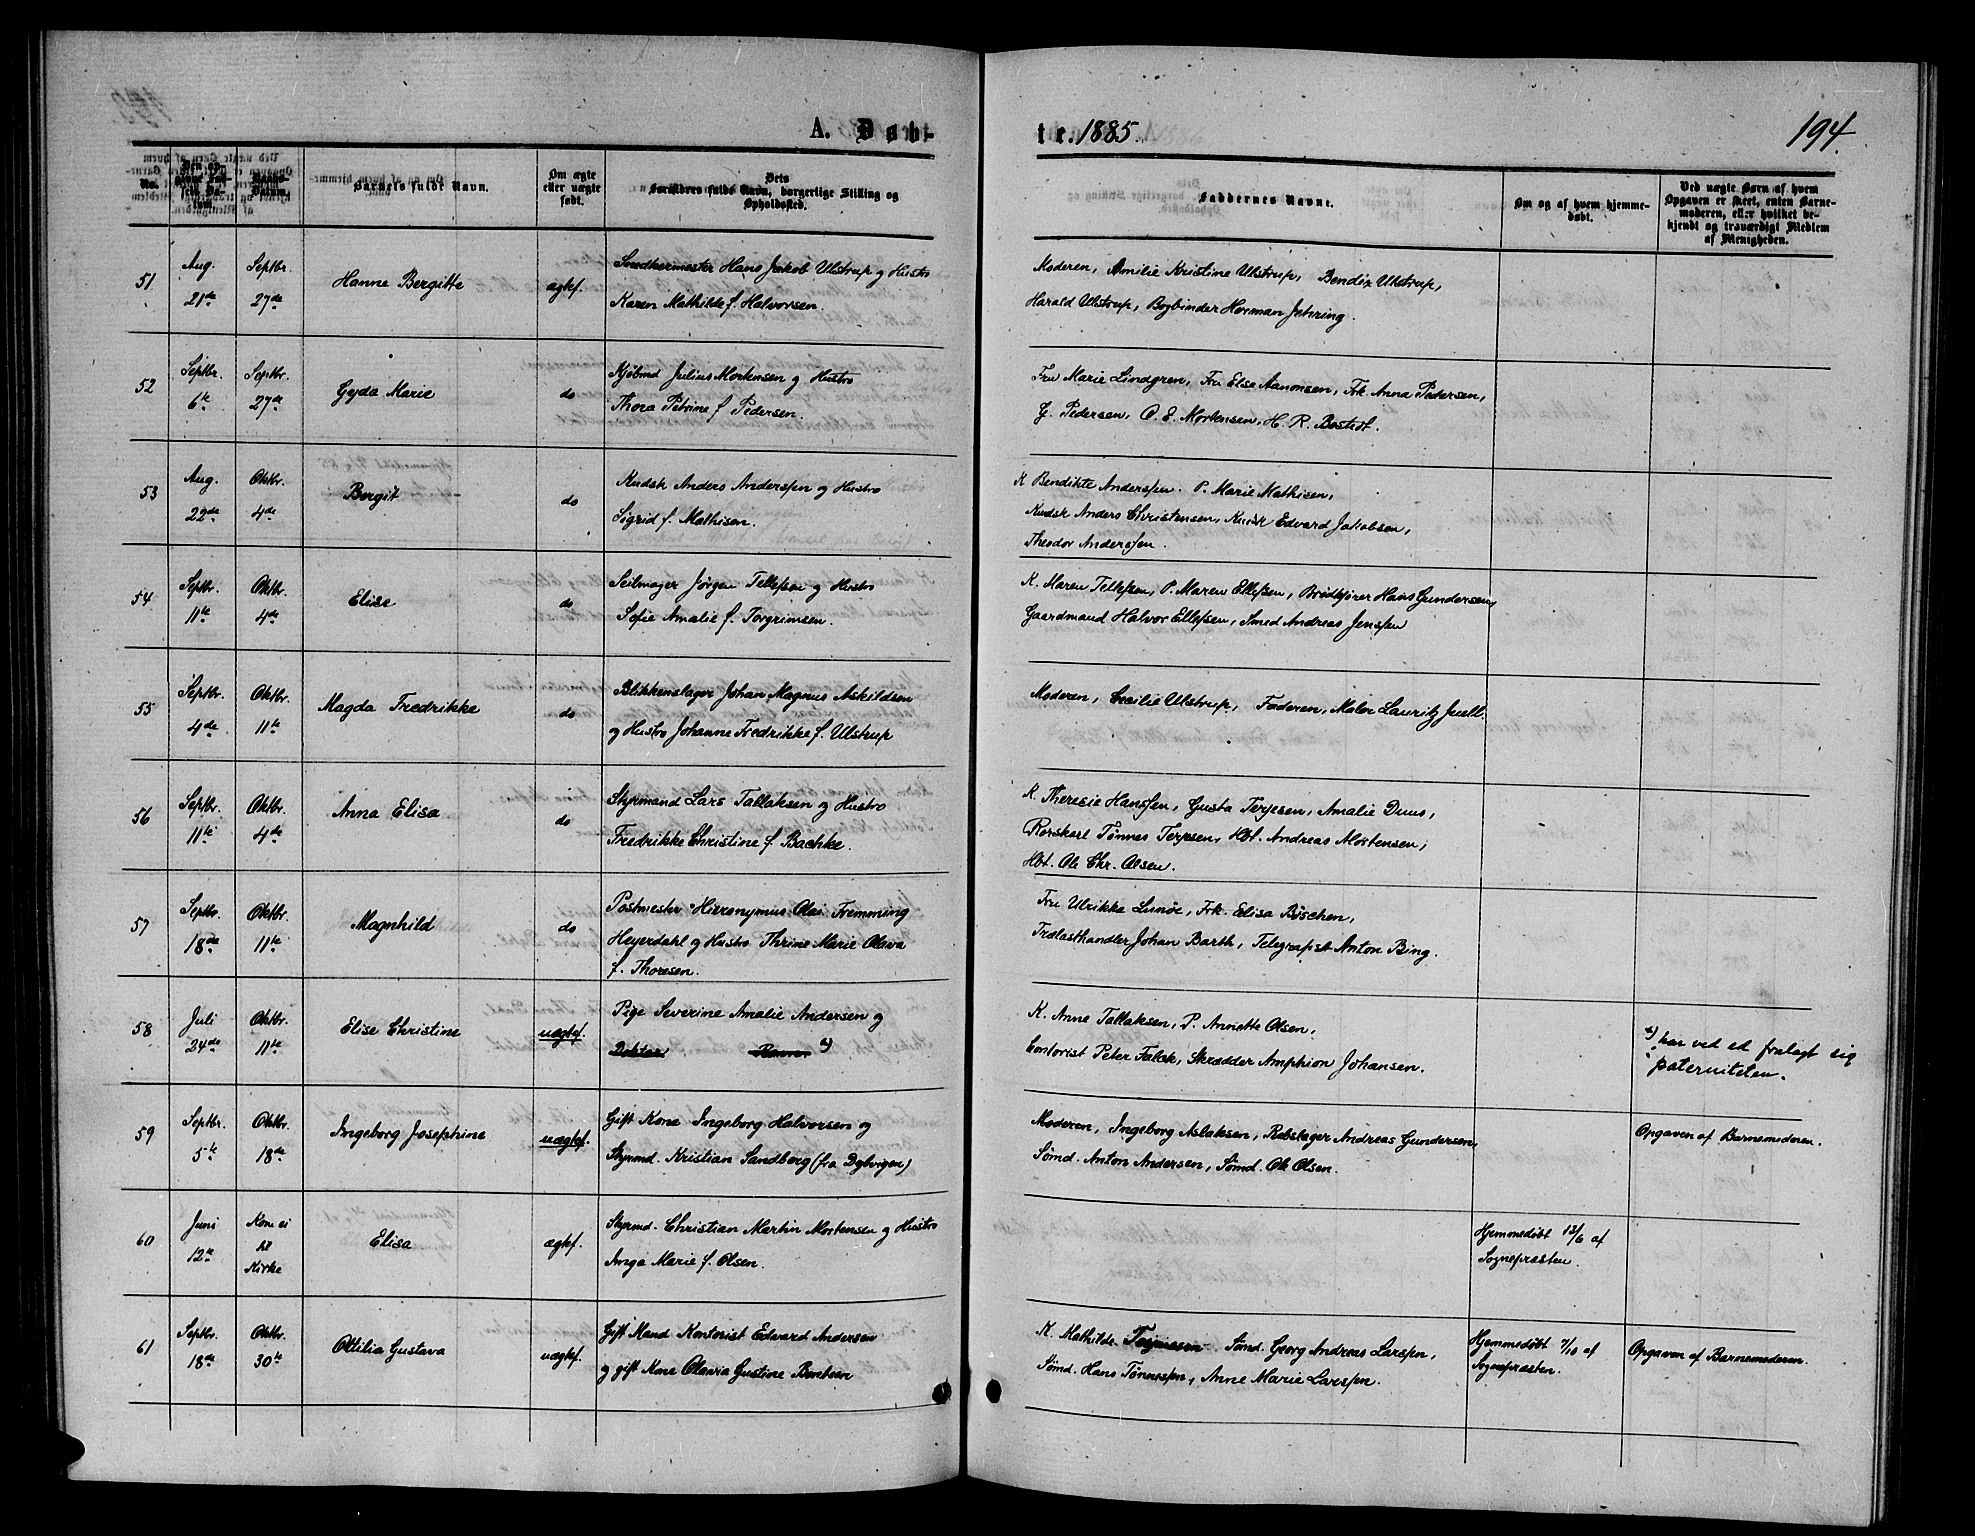 A. Døb-
te. 1885
194.
No.
Den opgivne Fødsels Datum.
Daabs-Datum.
Barnets fulde Navn.
Om ægte eller uægte født.
Dets Forældres fulde Navn, borgerlige Stilling og Opholdssted.
Faddernes Navne.
Om og af hvem hjemmedøbt.
Ved uægte Børn af hvem Opgaven er skeet, enten Barnemoderen, eller hvilket bekjendt og troværdigt Medlem af Menigheden.
51
Aug. 21de
Septbr. 27de
Hanne Bergitte
ægtef.
Snedkermester Hans Jakob Ulstrup og Hustro
Karen Mathilde f. Halvorsen.
Moderen, Amilie Kristine Ulstrup, Bendix Ulstrup,
Harald Ulstrup, Bogbinder Herman Jehring.
52
Septbr. 6te
Septbr. 27de
Gyda Marie
do
Kjøbmd Julius Mortensen og Hustro
Thora Petrine f. Pedersen.
Fru Marie Lindgren, Fru Else Aanonsen, Frk. Anna Pedersen,
G. Pedersen, O. E. Mortensen, H. R. Bostedt.
53
Aug. 22de
Oktbr. 4de
Bergit
do
Kudsk Anders Anderssen og Hustro
Sigrid f. Mathisen.
K Bendikte Anderssen. P. Marie Mathisen,
Kudsk Anders Christensen, Kudsk Edvard Jakobsen,
Theodor Anderssen.
54
Septbr. 11te
Oktbr. 4de
Elise
do
Seilmager Jørgen Tellefsen og Hustro
Sofie Amalie f. Torgrimsen.
K. Maren Tellefsen, P. Maren Ellefsen, Brødkjører Hans Gundersen,
Gaardmand Halvor Ellefsen, Smed Andreas Jenssen
55
Septbr. 4de
Oktbr. 11te
Magda Fredrikke
do
Blikkenslager Johan Magnus Askildsen
og Hustro Johanne Fredrikke f. Ulstrup
Moderen, Cecilie Ulstrup, Faderen, Maler Lauritz Juell.
56
Septbr. 11te
Oktbr. 4de
Anna Elisa
do
Styrmand Lars Tallaksen og Hustro
Fredrikke Christine f. Bachke.
K. Theresie Hanssen, Gusta Terjesen, Amalie Duus,
Rorskarl Tønnes Terjesen, Hbt. Andreas Mortensen,
Hbt. Ole Chr. Olsen.
57
Septbr. 18de
Oktbr. 11te
Magnhild
do
Postmester Hieronymus Olai Fremming
Heyerdahl og Hustro Thrine Marie Olava
f. Thoresen.
Fru Ulrikke Lunøe, Frk. Elisa Büschen,
Trælasthandler Johan Barth, Telegrafist Anton Bing.
58
Juli 24de
Oktbr. 11te
Elise Christine
uægtef.
Pige Severine Amalie Andersen og
Doktor
K. Anne Tallaksen, P. Annette Olsen,
Contorist Peter Falck, Skrædder Amphion Johansen.
har ved ed fralagt sig
paterniteten.
59
Septbr. 5te
Oktbr. 18de
Ingeborg Josephine
uægtef.
Gift Kone Ingeborg Halvorsen og
Styrmd. Kristian Sandberg (fra Dybvigen)
Moderen, Ingeborg Aslaksen, Rebslager Andreas Gundersen,
Sømd. Anton Andersen, Sømd. Ole Olsen.
Opgaven af Barnemoderen.
60
Juni 12te
Kom ei til Kirke
Elisa
ægtef.
Styrmd. Christian Martin Mortensen og Hustro
Inga Marie f. Olsen.
Hjemmedøbt 13/6 af
Sognepræsten.
61
Septbr. 18de
Oktbr. 30te
Ottilia Gustava
uægtef.
Gift Mand Kontorist Edvard Andersen
og gift Kone Olavia Gustine Bentsen
K. Mathilde Sømd. Georg Andreas Larssen,
Sømd. Hans Tønnessen, Anne Marie Larssen.
Hjemmedøbt 7/10 af
Sognepræsten.
Opgaven af Barnemoderen.